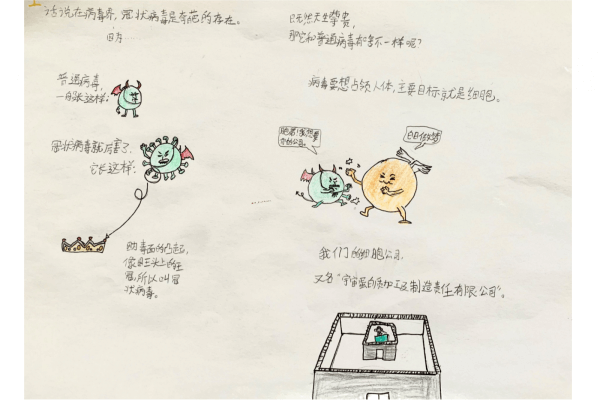 话说在病毒界,冠状病毒是奇葩的存在。
因为……
普通病毒,
一般长这样:
冠状病毒就厉害了,
它长这样:
病毒面的凸起,
像国王头上的王
冠,所以叫冠
状病毒。
既然天生攀贵,
那它和普通病毒有啥不一样呢?
病毒要想占领人体,主要目标就是细胞。
我们的细胞公司,
又名“宇宙蛋白质加工及制造责任有限公司”。